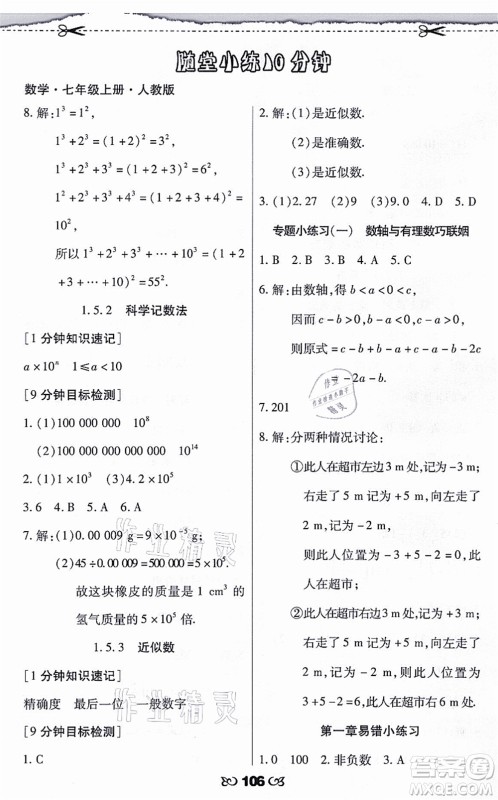 随堂小练10分钟
数学·七年级上册·人教版
8. 解：1³=1²，
1³+2³=(1+2)²=3²，
1³+2³+3³=(1+2+3)²=6²，
1³+2³+3³+4³=(1+2+3+4)²=
10²，
所以 1³+2³+3³+…+10³=(1+2
+3+…+10)²=55².
1.5.2 科学记数法
[1分钟知识速记]
a×10ⁿ 1≤a<10
[9分钟目标检测]
1. (1)100 000 000 10⁸
(2)100 000 000 000 000 10¹⁴
2. (1)A (2)A
3. 6 4. B 5. A 6. A
7. 解：(1)0.00 009 g=9×10⁻⁵ g；
(2)45÷0.00 009=500 000=5×10⁵.
故这块橡皮的质量是 1 cm³ 的
氢气质量的 5×10⁵ 倍.
1.5.3 近似数
[1分钟知识速记]
精确度 最后一位 一般数字
[9分钟目标检测]
1. C
2. 解：(1)是近似数.
(2)是准确数.
(3)是近似数.
3. (1)2.27 (2)9 (3)9.0 4. D 5. D
专题小练习(一) 数轴与有理数巧联姻
1. B 2. B 3. B 4. A 5. C
6. 解：由数轴，得 b<a<0<c，
因而 a<0，a-c<0，b-c<0，
则原式=-a-b+c-a+b-2c
=-2a-b.
7. 201
8. 解：分两种情况讨论：
①此人在超市左边3 m处，记为-3 m；
右走了 5 m 记为+5 m，向左走了
2 m，记为-2 m，
则此人位置为-3+5-2=0，此人
在超市；
②此人在超市右边3 m处，记为+3 m；
右走了 5 m 记为+5 m，向左走了
2 m，记为-2 m，
则此人位置为+3+5-2=+6，
+3+5-2=6，
答：此人在超市或在超市右边6 m处.
第一章易错小练习
1. 0 100 2. 非负数 3. A 4. C
106
作业精灵
作业精灵
答案圈
MXQE.COM